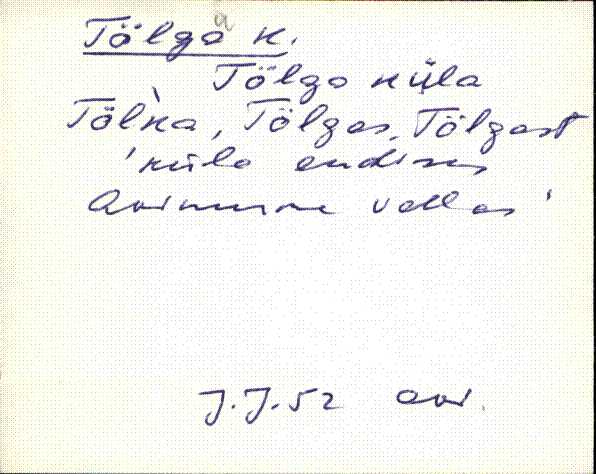 Tölga k.
Tölga küla
Töl̀ka, Tölgas, Tölgast
'küla endises
Avinurme vallas'
J.J.52 Avi.